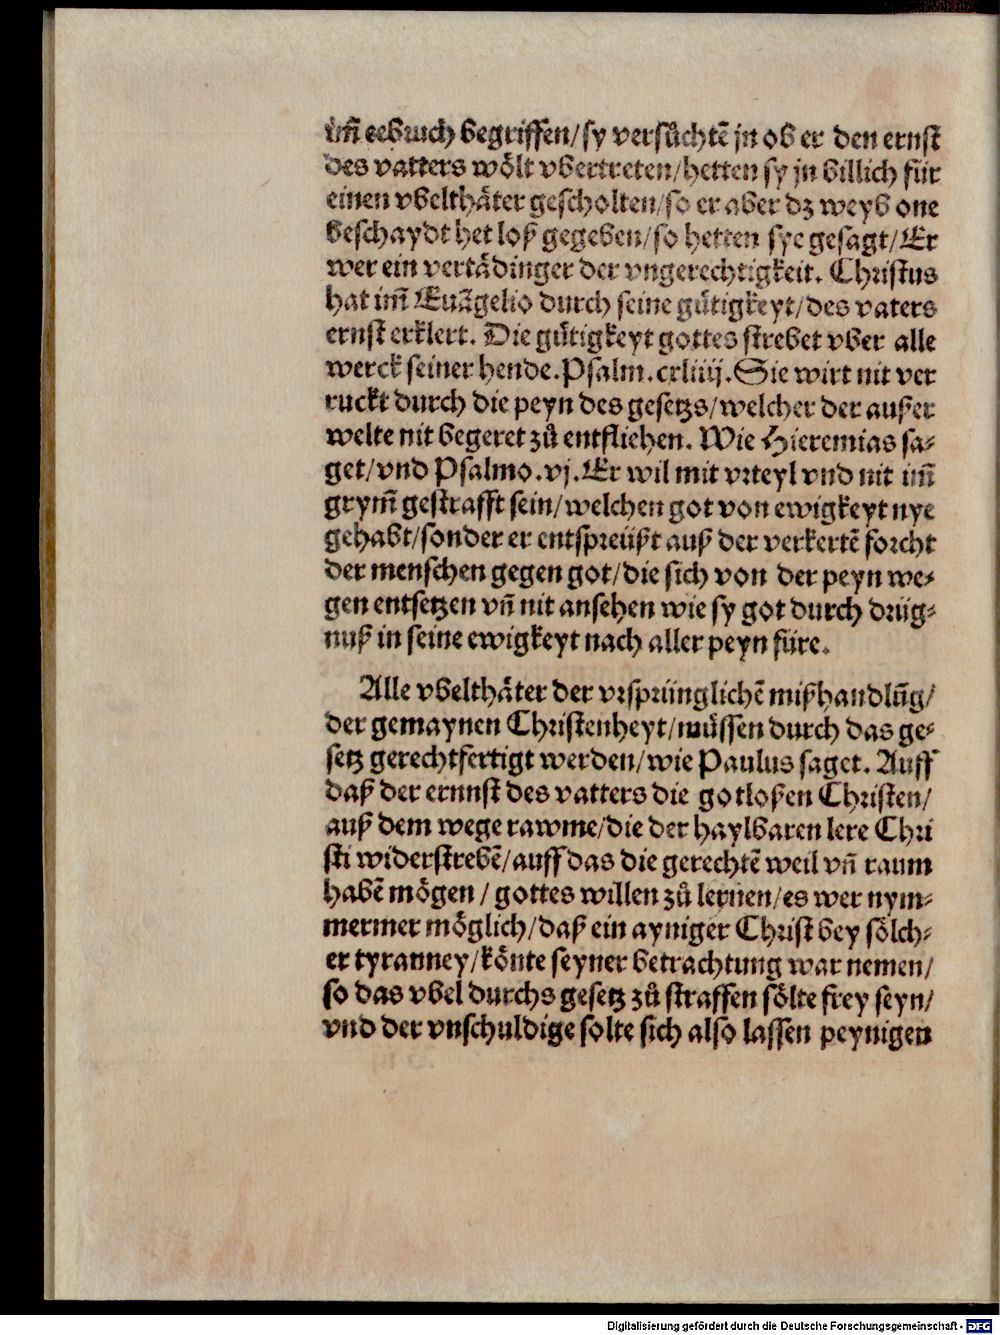 im̃ eebruch begriffen/sy versůchtẽ jn ob er den ernst
des vatters wölt vbertreten/hetten sy jn billich für
einen vbelthäter gescholten/so er aber dz weyb one
beschaydt het loß gegeben/so hetten sye gesagt/Er
wer ein vertädinger der vngerechtigkeit. Christus
hat im̃ Euãgelio durch seine gůtigkeyt/des vaters
ernst erklert. Die gůtigkeyt gottes strebet vber alle
werck seiner hende. Psalm. cxliiij. Sie wirt nit ver
ruckt durch die peyn des gesetzs/welcher der außer
welte nit begeret zů entfliehen. Wie Hieremias sa-
get/vnd Psalmo. vj. Er wil mit vrteyl vnd nit im̃
grym̃ gestrafft sein/welchen got von ewigkeyt nye
gehabt/sonder er entspreüßt auß der verkertẽ forcht
der menschen gegen got/die sich von der peyn we-
gen entsetzen vñ nit ansehen wie sy got durch drüg-
nuß in seine ewigkeyt nach aller peyn füre.
Alle vbelthäter der vrsprünglichẽ mißhandlũg/
der gemaynen Christenheyt/müssen durch das ge-
setz gerechtfertigt werden/wie Paulus saget. Auff
daß der ernnst des vatters die gotloßen Christen/
auß dem wege rawme/die der haylbaren lere Chri
sti widerstrebẽ/auff das die gerechtẽ weil vñ raum
habẽ mögen/gottes willen zů lernen/es wer nym-
mermer möglich/daß ein ayniger Christ bey sölch-
er tyranney/könte seyner betrachtung war nemen/
so das vbel durchs gesetz zů straffen sölte frey seyn/
vnd der vnschuldige solte sich also lassen peynigen
Digitalisierung gefördert durch die Deutsche Forschungsgemeinschaft - DFG